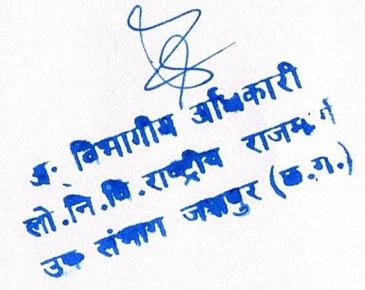 अ. विभागीय अधिकारी
लो.नि.वि.राष्ट्रीय राजमार्ग
उप संभाग जशपुर (छ.ग.)